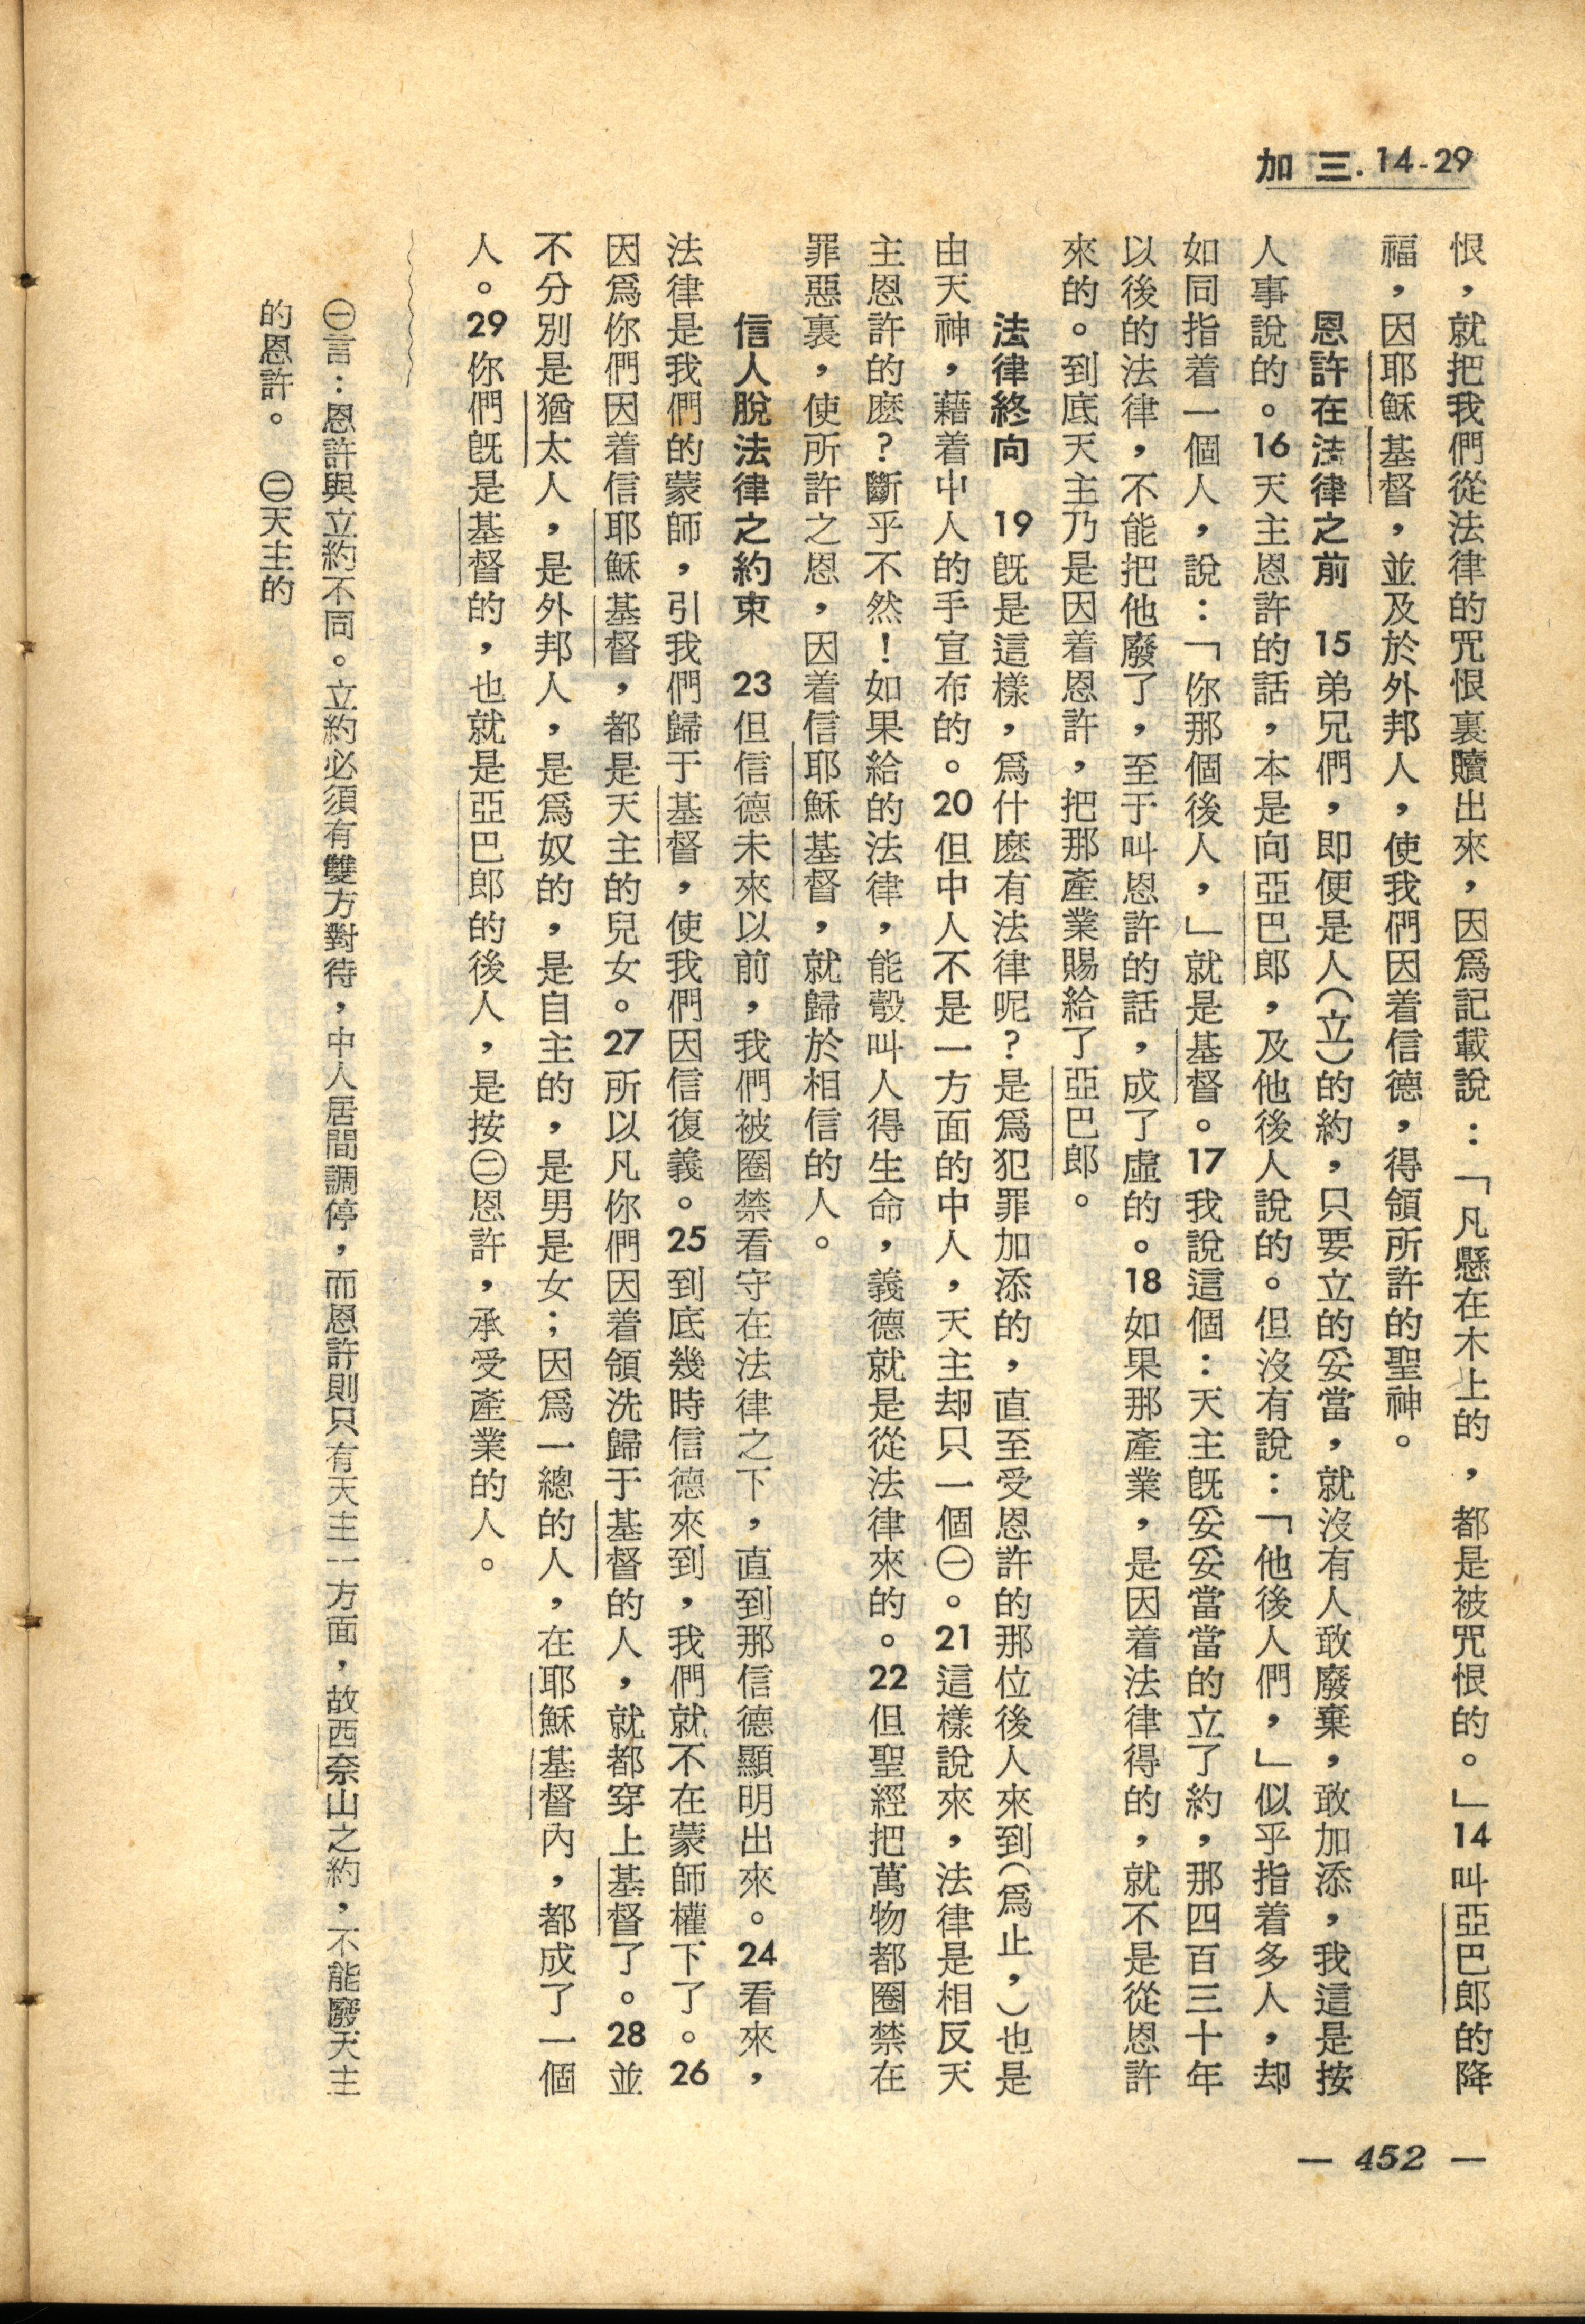 加 三. 14-29
恨，就把我們從法律的咒恨裏贖出來，因爲記載說：「凡懸在木上的，都是被咒恨的。」14叫亞巴郎的降
福，因耶穌基督，並及於外邦人，使我們因着信德，得領所許的聖神。
恩許在法律之前　15弟兄們，即便是人（立）的約，只要立的妥當，就沒有人敢廢棄，敢加添，我這是按
人事說的。16天主恩許的話，本是向亞巴郎，及他後人說的。但沒有說：「他後人們，」似乎指着多人，却
如同指着一個人，說：「你那個後人，」就是基督。17我說這個：天主旣妥妥當當的立了約，那四百三十年
以後的法律，不能把他廢了，至于叫恩許的話，成了虛的。18如果那產業，是因着法律得的，就不是從恩許
來的。到底天主乃是因着恩許，把那產業賜給了亞巴郎。
法律終向　19旣是這樣，爲什麽有法律呢？是爲犯罪加添的，直至受恩許的那位後人來到（爲止，）也是
由天神，藉着中人的手宣布的。20但中人不是一方面的中人，天主却只一個㊀。21這樣說來，法律是相反天
主恩許的麽？斷乎不然！如果給的法律，能彀叫人得生命，義德就是從法律來的。22但聖經把萬物都圈禁在
罪惡裏，使所許之恩，因着信耶穌基督，就歸於相信的人。
信人脫法律之約束　23但信德未來以前，我們被圈禁看守在法律之下，直到那信德顯明出來。24看來，
法律是我們的蒙師，引我們歸于基督，使我們因信復義。25到底幾時信德來到，我們就不在蒙師權下了。26
因爲你們因着信耶穌基督，都是天主的兒女。27所以凡你們因着領洗歸于基督的人，就都穿上基督了。28並
不分別是猶太人，是外邦人，是爲奴的，是自主的，是男是女；因爲一總的人，在耶穌基督內，都成了一個
人。29你們旣是基督的，也就是亞巴郎的後人，是按㊁恩許，承受產業的人。
㊀言：恩許與立約不同。立約必須有雙方對待，中人居間調停，而恩許則只有天主一方面，故西奈山之約，不能廢天主
的恩許。　㊁天主的
— 452 —